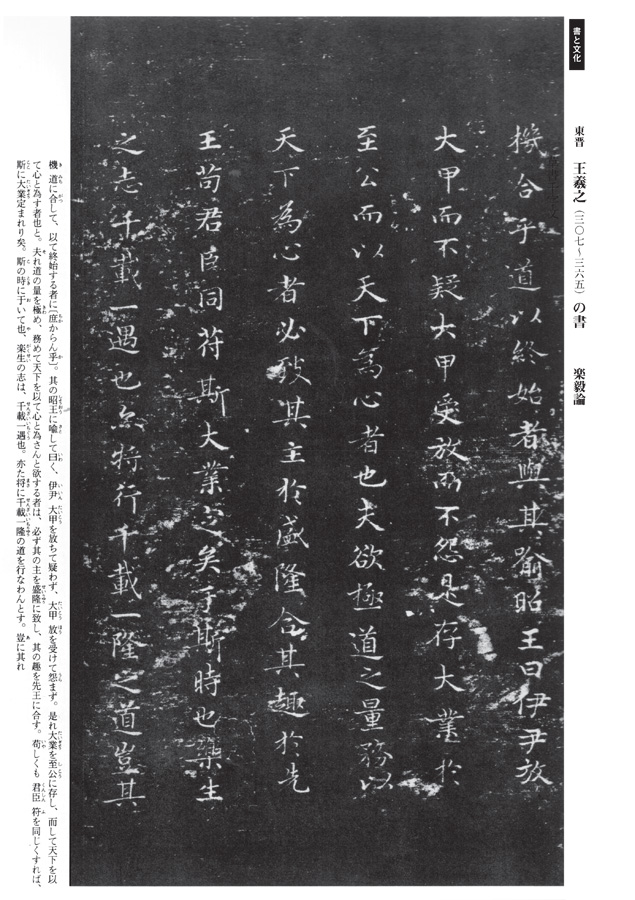 書と文化
東晋 王羲之(三〇七~三六五)の書 楽毅論
機合乎道以終始者與其喻昭王曰伊尹放
大甲而不疑大甲受放而不怨是存大業於
至公而以天下為心者也夫欲極道之量務以
天下為心者必致其主於盛隆合其趣於先
王苟君臣同符斯大業定矣于斯時也樂生
之志千載一遇也亦将行千載一隆之道豈其
機 道に合して、以て終始する者に〔庶からん乎〕。其の昭王に喩して曰く、伊尹 大甲を放ちて疑わず、大甲 放を受けて怨まず。是れ大業を至公に存し、而して天下を以
て心と為す者也と。夫れ道の量を極め、務めて天下を以て心と為さんと欲する者は、必ず其の主を盛隆に致し、其の趣を先王に合す。苟しくも 君臣 符を同じくすれば、
斯に大業定まれり矣。斯の時に于いて也、楽生の志は、千載一遇也。亦た将に千載一隆の道を行なわんとす。豈に其れ